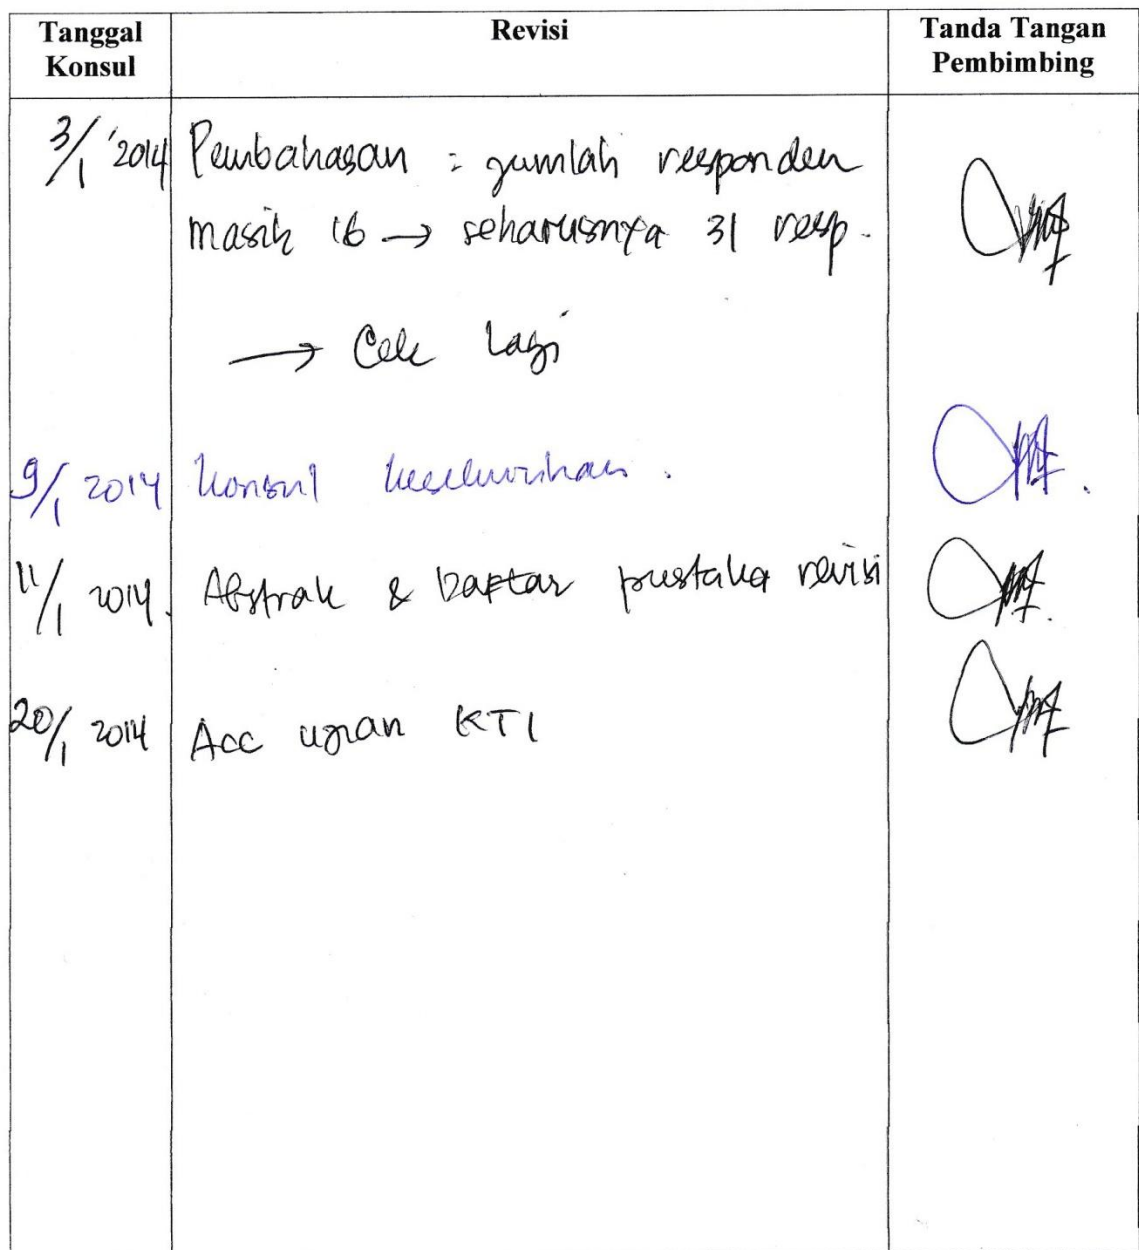 Tanggal Konsul
Revisi
Tanda Tangan Pembimbing
3/1 '2014 Pembahasan : jumlah responden
masih 16 → seharusnya 31 resp.
→ Cek lagi
9/1 2014 konsul keseluruhan.
11/1 2014. Abstrak & Daftar pustaka revisi
20/1 2014 Acc ujian KTI